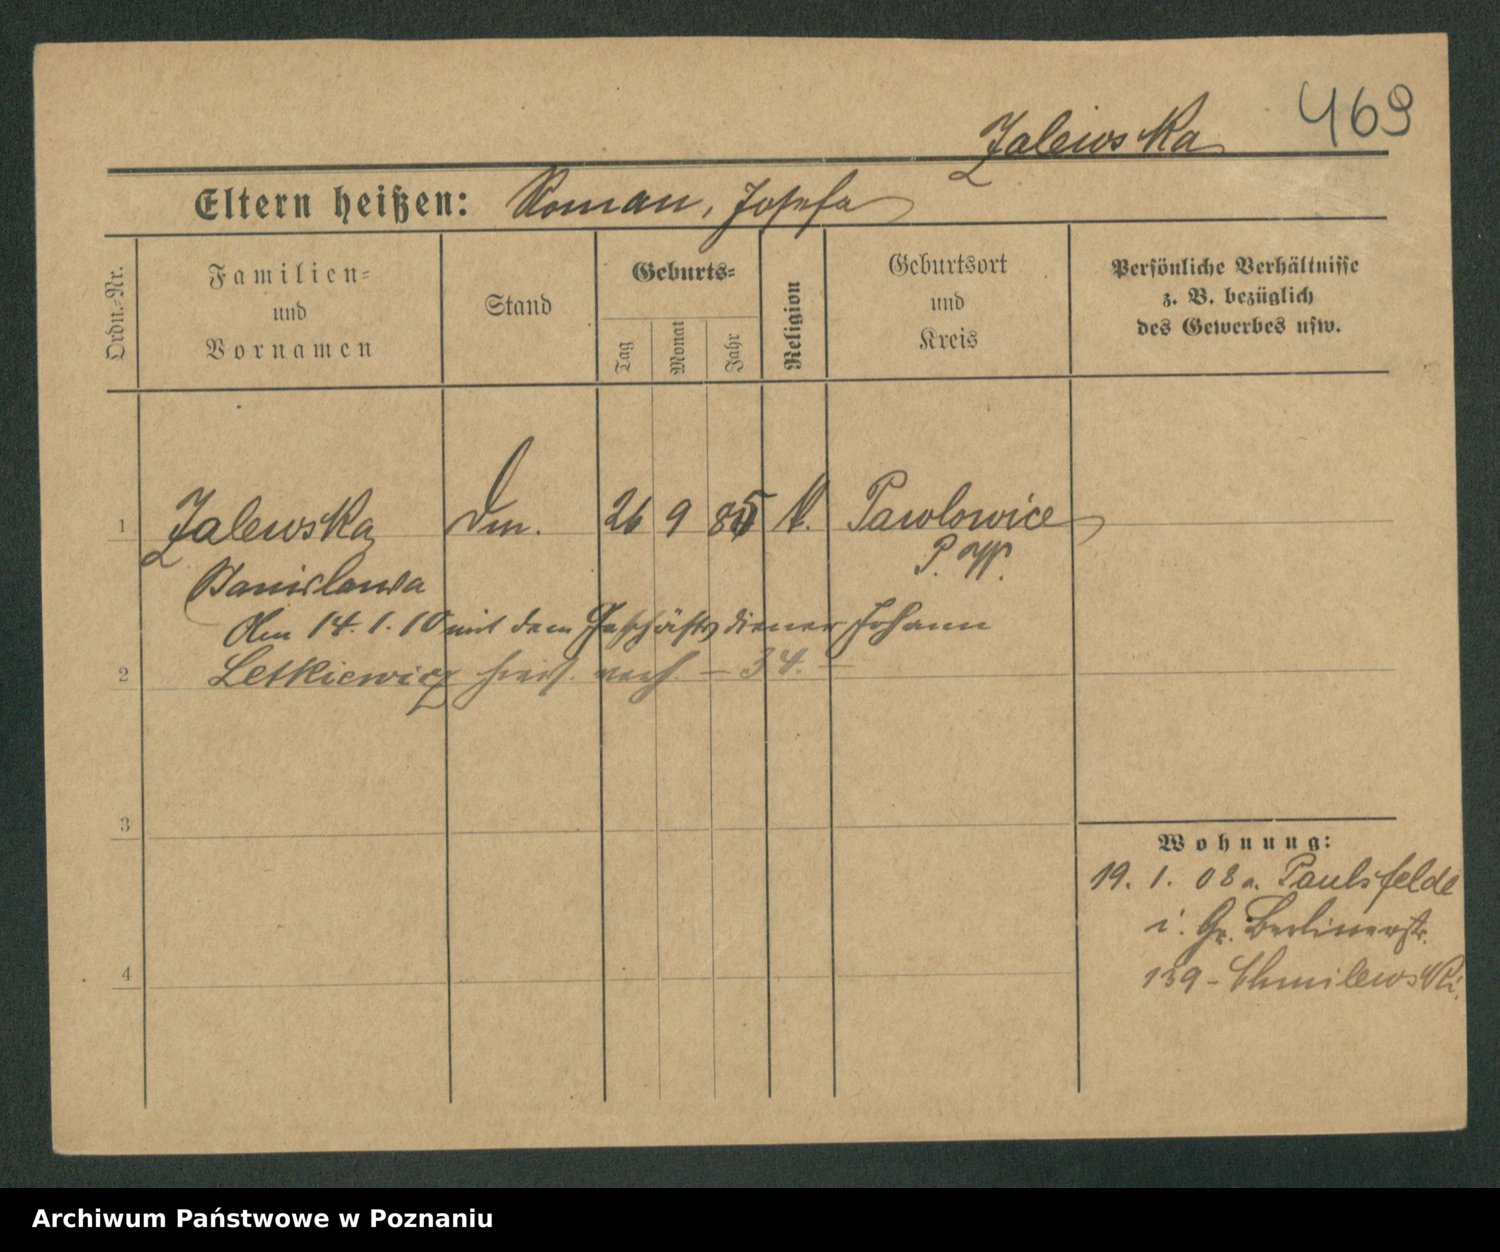 469
Zalewska
Eltern heißen: Roman, Josefa
Ordn.-Nr.
Familien-
und
Vornamen
Stand
Geburts-
Tag
Monat
Jahr
Religion
Geburtsort
und
Kreis
Persönliche Verhältnisse
z. B. bezüglich
des Gewerbes usw.
1 Zalewska 26 9 85 k. Pawlowice
Stanislawa P. W.
Am 14. 1. 10 mit dem Geschäftsdiener Johann
2 Letkiewicz verh. – 34. –
3
Wohnung:
19. 1. 08 a. Paulsfelde
i. Gr. Berlinerstr.
4
139 - Chmilewski.
Archiwum Państwowe w Poznaniu